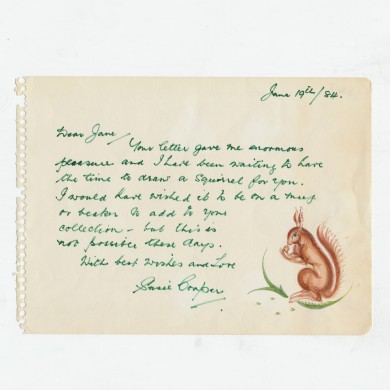 June 19th/84.
Dear Jane,
Your letter gave me enormous
pleasure and I have been waiting to have
the time to draw a squirrel for you.
I would have wished it to be on a mug
or beaker to add to your
collection - but this is
not possible these days.
With best wishes and Love
Susie Cooper